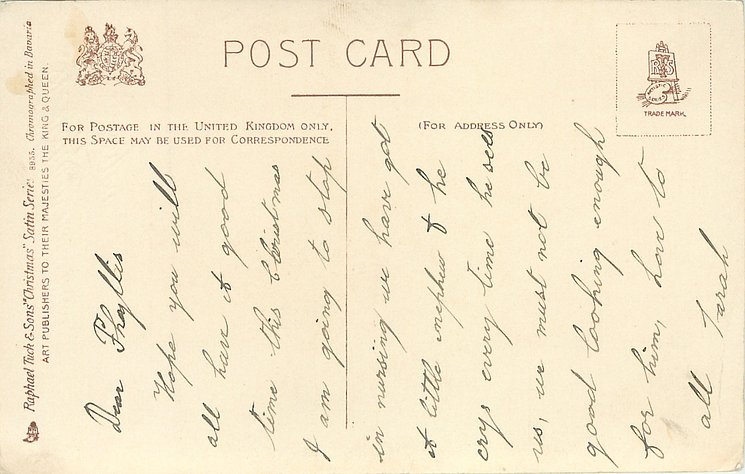 POST CARD
FOR POSTAGE IN THE UNITED KINGDOM ONLY,
THIS SPACE MAY BE USED FOR CORRESPONDENCE
(FOR ADDRESS ONLY)
TRADE MARK.
Raphael Tuck & Sons' "Christmas" Satin Serie: 8955. Chromographed in Bavaria
ART PUBLISHERS TO THEIR MAJESTIES THE KING & QUEEN.
Dear Phyllis
Hope you will
all have a good
time this Christmas
I am going to stop
in nursing we have got
a little nephew & he
crys every time he sees
us, we must not be
good looking enough
for him, love to
all Sarah